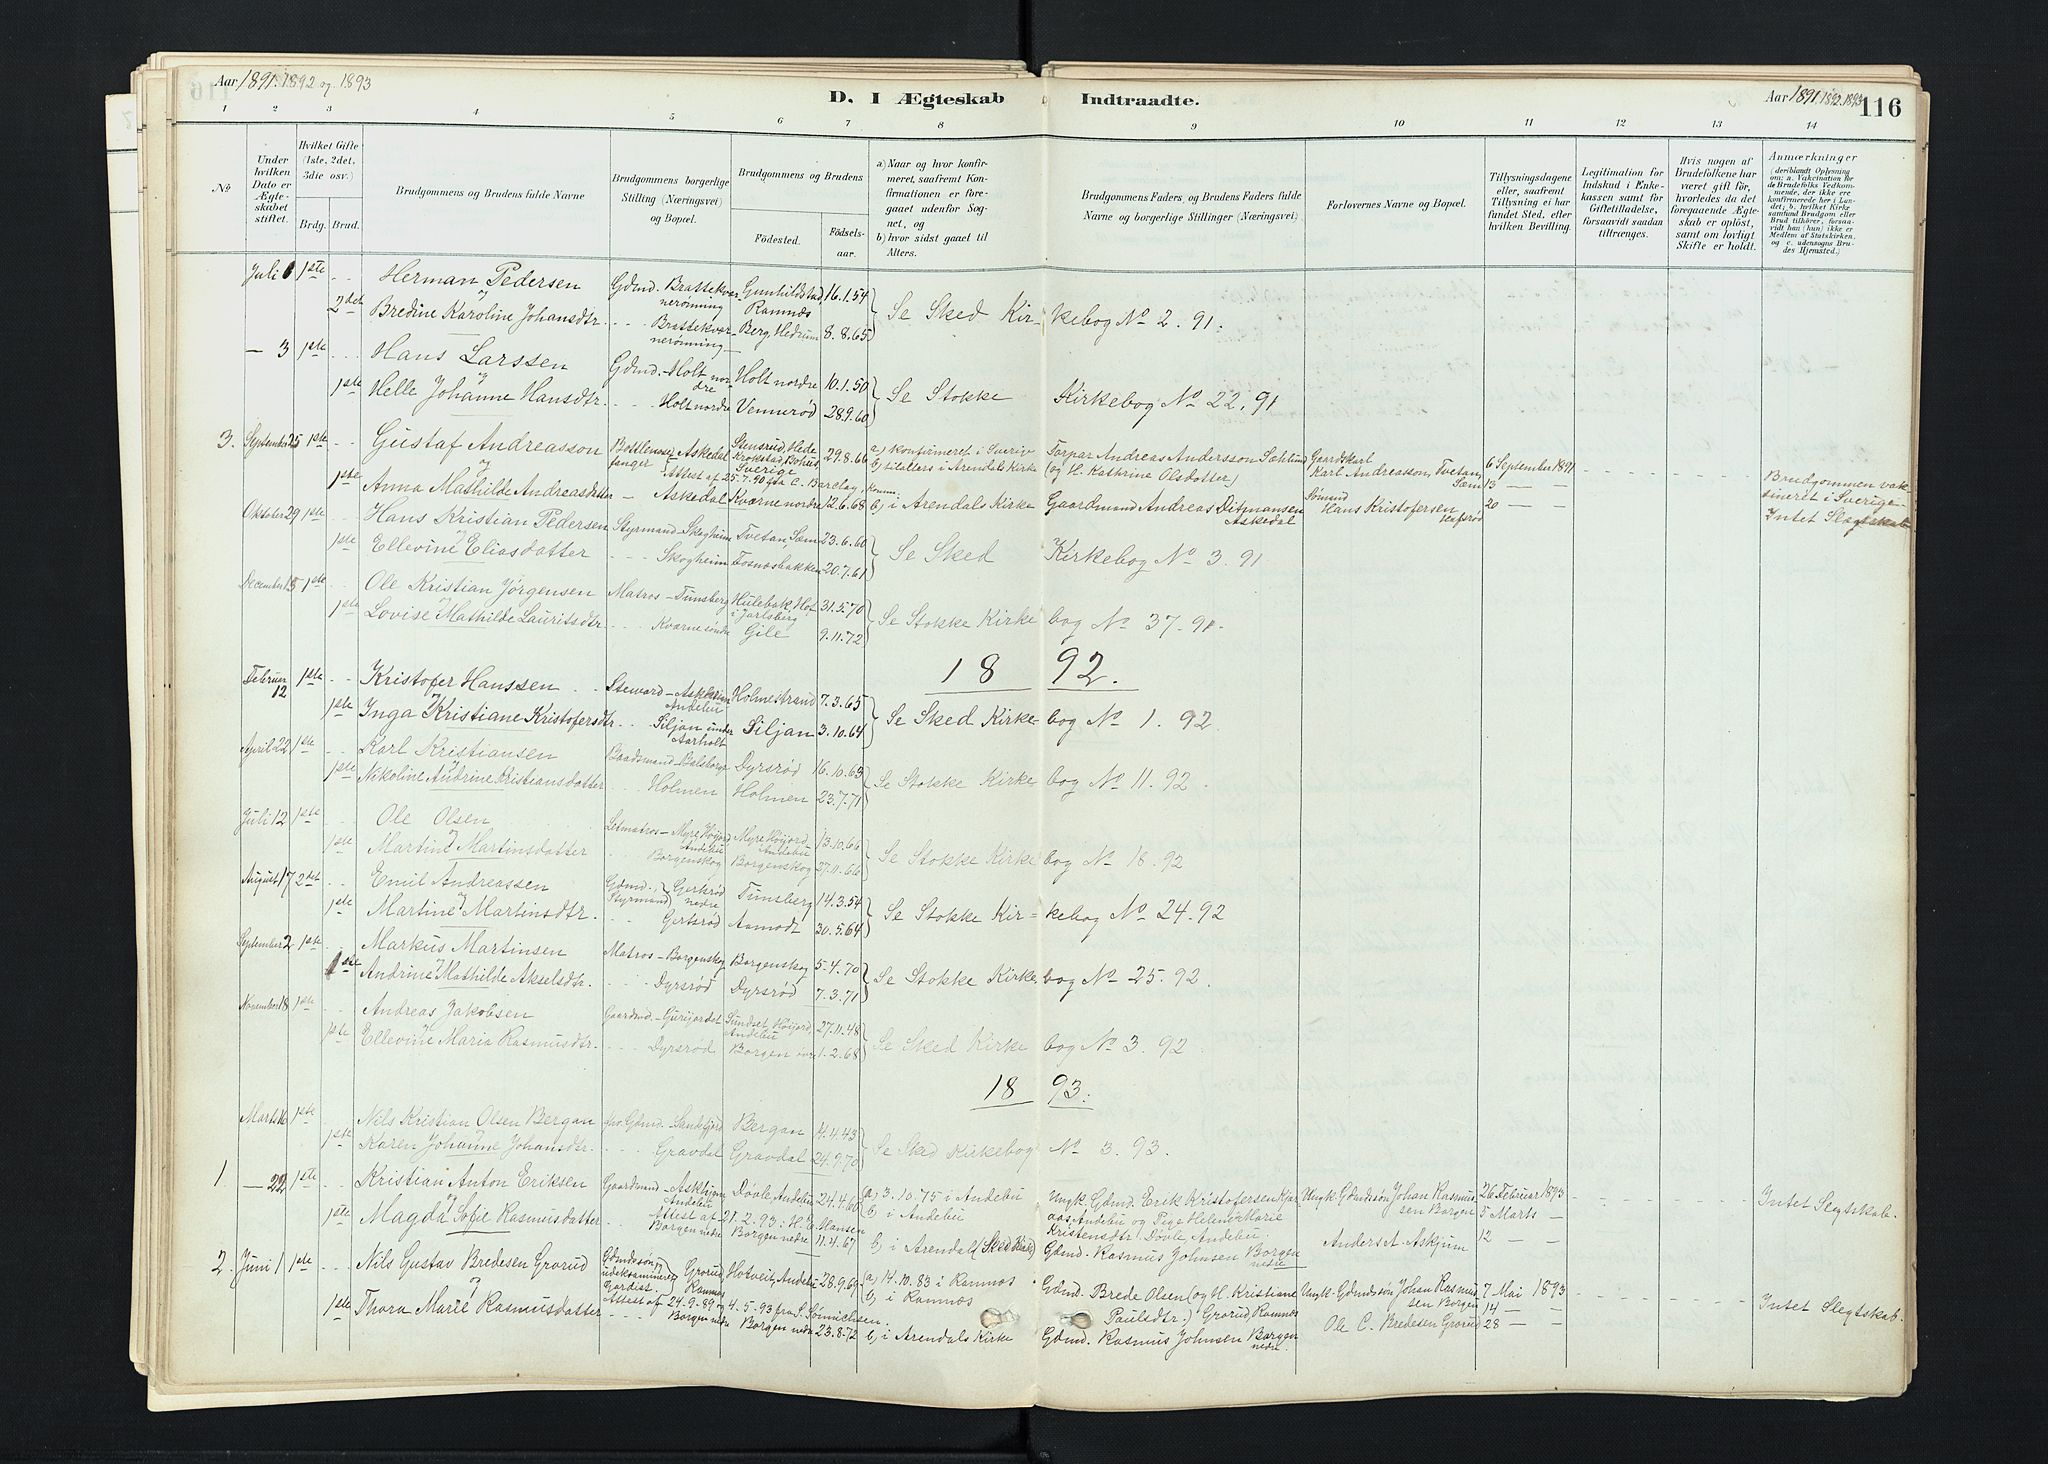 Aar 1891. 1892 og 1893
D. I Ægteskab Indtraadte.
Aar 1891. 1892. 1893
116
1 2 3 4 5 6 7 8 9 10 11 12 13 14
No
Under hvilken Dato er Ægteskabet stiftet.
Hvilket Gifte (1ste, 2det, 3die osv.)
Brdg. Brud.
Brudgommens og Brudens fulde Navne
Brudgommens borgerlige Stilling (Næringsvei) og Bopæl.
Brudgommens og Brudens
Födested.
Födselsaar.
a) Naar og hvor konfirmeret, saafremt Konfirmationen er foregaaet udenfor Sognet, og
b) hvor sidst gaaet til Alters.
Brudgommens Faders, og Brudens Faders fulde Navne og borgerlige Stillinger (Næringsvei)
Forlovernes Navne og Bopæl.
Tillysningsdagene eller, saafremt Tillysning ei har fundet Sted, efter hvilken Bevilling.
Legitimation for Indskud i Enkekassen samt for Giftetilladelse, forsaavidt saadan tiltrænges.
Hvis nogen af Brudefolkene har været gift för, hvorledes da det foregaaende Ægteskab er oplöst, samt om lovligt Skifte er holdt.
Anmærkninger (deriblandt Oplysning om: a. Vakcination for de Brudefolks Vedkommende, der ikke ere konfirmerede her i Landet; b. hvilket Kirkesamfund Brudgom eller Brud tilhörer, forsaavidt han (hun) ikke er Medlem af Statskirken, og c. udensogns Brudes Hjemsted.
Juli 6 1ste Herman Pedersen Gdmd. Brattekvernerønning Gunhildstad Ramnæs 16.1.54
2det Bredine Karoline Johansdtr. Brattekvernerønning Berg, Hedrum 8.8.65 Se Sked Kirkebog No 2. 91.
— 3 1ste Hans Larssen Gdmd. Holt nordre Holt nordre 10.1.50
1ste Helle Johanne Hansdtr. Holt nordre Vennerød 28.9.60 Se Stokke Kirkebog No 22. 91
3. September 25 1ste Gustaf Andreasson Bottlenosefanger Askedal Stensrud, Hede Krokstad, Bohus, Sverige 29.8.66 a) konfirmeret i Sverige Torpar Andreas Andersson Sætlund Gaardskarl Karl Andreasson, Tvetan, Sæm 6 September 1891
b) titellers i Arendals Kirke (og H. Kathrine Olsdotter) 13 — —
Attest af 25.7.90 fra C. Barclay, komm:
1ste Anna Mathilde Andreasdatter — Askedal Kværne nordre 12.6.68 b) i Arendals Kirke Gaardmand Andreas Ditmansen Askedal Sømand Hans Kristofersen Hafsrød 20 — — Brudgommen vaksineret i Sverige. Intet Slegtskab
Oktober 29 1ste Hans Kristian Pedersen Styrmand Skogheim Tvetan, Sæm 23.6.60
1ste Ellevine Eliasdatter Skogheim Fosnæsbakken 20.7.61 Se Sked Kirkebog No 3. 91
December 15 1ste Ole Kristian Jørgensen Matros — Tunsberg Hulebak, Hof i Jarlsberg 31.5.70
1ste Lovise Mathilde Lauritsdtr. Kværne søndre Gile 9.11.72 Se Stokke Kirkebog No 37. 91.
18 92.
Februar 12 1ste Kristofer Hanssen Steward — Askheim Andebu Holmestrand 7.3.65
1ste Inga Kristiane Kristofersdtr. Siljan under Aarholt Siljan 3.10.64 Se Sked Kirkebog No 1. 92
April 22 1ste Karl Kristiansen Baadsmand — Dyrsrød 16.10.63
1ste Nikoline Andrine Kristiansdatter Holmen Holmen 23.7.71 Se Stokke Kirkebog No 11. 92.
Juli 12 1ste Ole Olsen Letmatros — Myre Høijord, Andebu Myre Høijord, Andebu 13.10.66
1ste Martine Martinsdatter Borgenskog Borgenskog 27.11.66 Se Stokke Kirkebog No 18. 92
August 17 2det Emil Andreassen Gdmd., Styrmand Gertsrød nedre Tunsberg 14.3.54
1ste Martine Martinsdtr. Gertsrød Aamodt 30.5.64 Se Stokke Kirkebog No 24. 92
September 2 1ste Markus Martinsen Matros — Borgenskog Borgenskog 5.4.70
1ste Andrine Mathilde Akselsdtr. Dyrsrød Dyrsrød 7.3.71 Se Stokke Kirkebog No 25. 92.
November 18 1ste Andreas Jakobsen Gaardmd. — Gurijordet Sundset, Høijord, Andebu 27.11.48
1ste Ellevine Maria Rasmusdtr. Dyrsrød Borgen øvre 1.2.68 Se Sked Kirkebog No 3. 92
18 93.
Marts 16 1ste Nils Kristian Olsen Bergan Gdmd. — Sandefjord Bergan 4.4.43
1ste Karen Johanne Johansdtr. Gravdal Gravdal 24.9.70 Se Sked Kirkebog No 3. 93.
1. — 22 1ste Kristian Anton Eriksen Gaardmand — Askhjem Andebu Døvle, Andebu 24.4.60 a) 3.10.75 i Andebu b) i Andebu Ungk. Gdmd. Erik Kristofersen Kjæraas, Andebu og Pige Helene Marie Kristensdtr. Døvle, Andebu Ungk. Gdmdssøn Johan Rasmussen Borgen 26 Februar 1893 5 Marts — Intet Slegtskab.
Attest af 21.2.93 : H. C. Hansen
1ste Magda Sofie Rasmusdatter Borgen nedre Borgen nedre 11.4.67 b) i Arendal (Sked Kirke) Gdmd. Rasmus Johnsen Borgen nedre Anders A. Askjum 12 — —
2. Juni 1 1ste Nils Gustav Bredesen Grorud Gdmdssøn, udeksamineret Gardist. Grorud Ramnæs Hotveit, Andebu 28.9.69 a) 14.10.83 i Ramnæs b) i Ramnæs Gdmd. Brede Olsen (og H. Kristiane Paulsdtr.) Grorud Ramnæs Ungk. Gdmdssøn Johan Rasmussen Borgen 7 Mai 1893 14 — — Intet Slegtskab.
Attest af 24.9.89 og 4.5.93 fra S. Sønnichsen.
1ste Thora Marie Rasmusdatter Borgen nedre Borgen nedre 23.8.72 b) i Arendals Kirke Gdmd. Rasmus Johnsen Borgen nedre. Ole C. Bredesen Grorud 28 — —